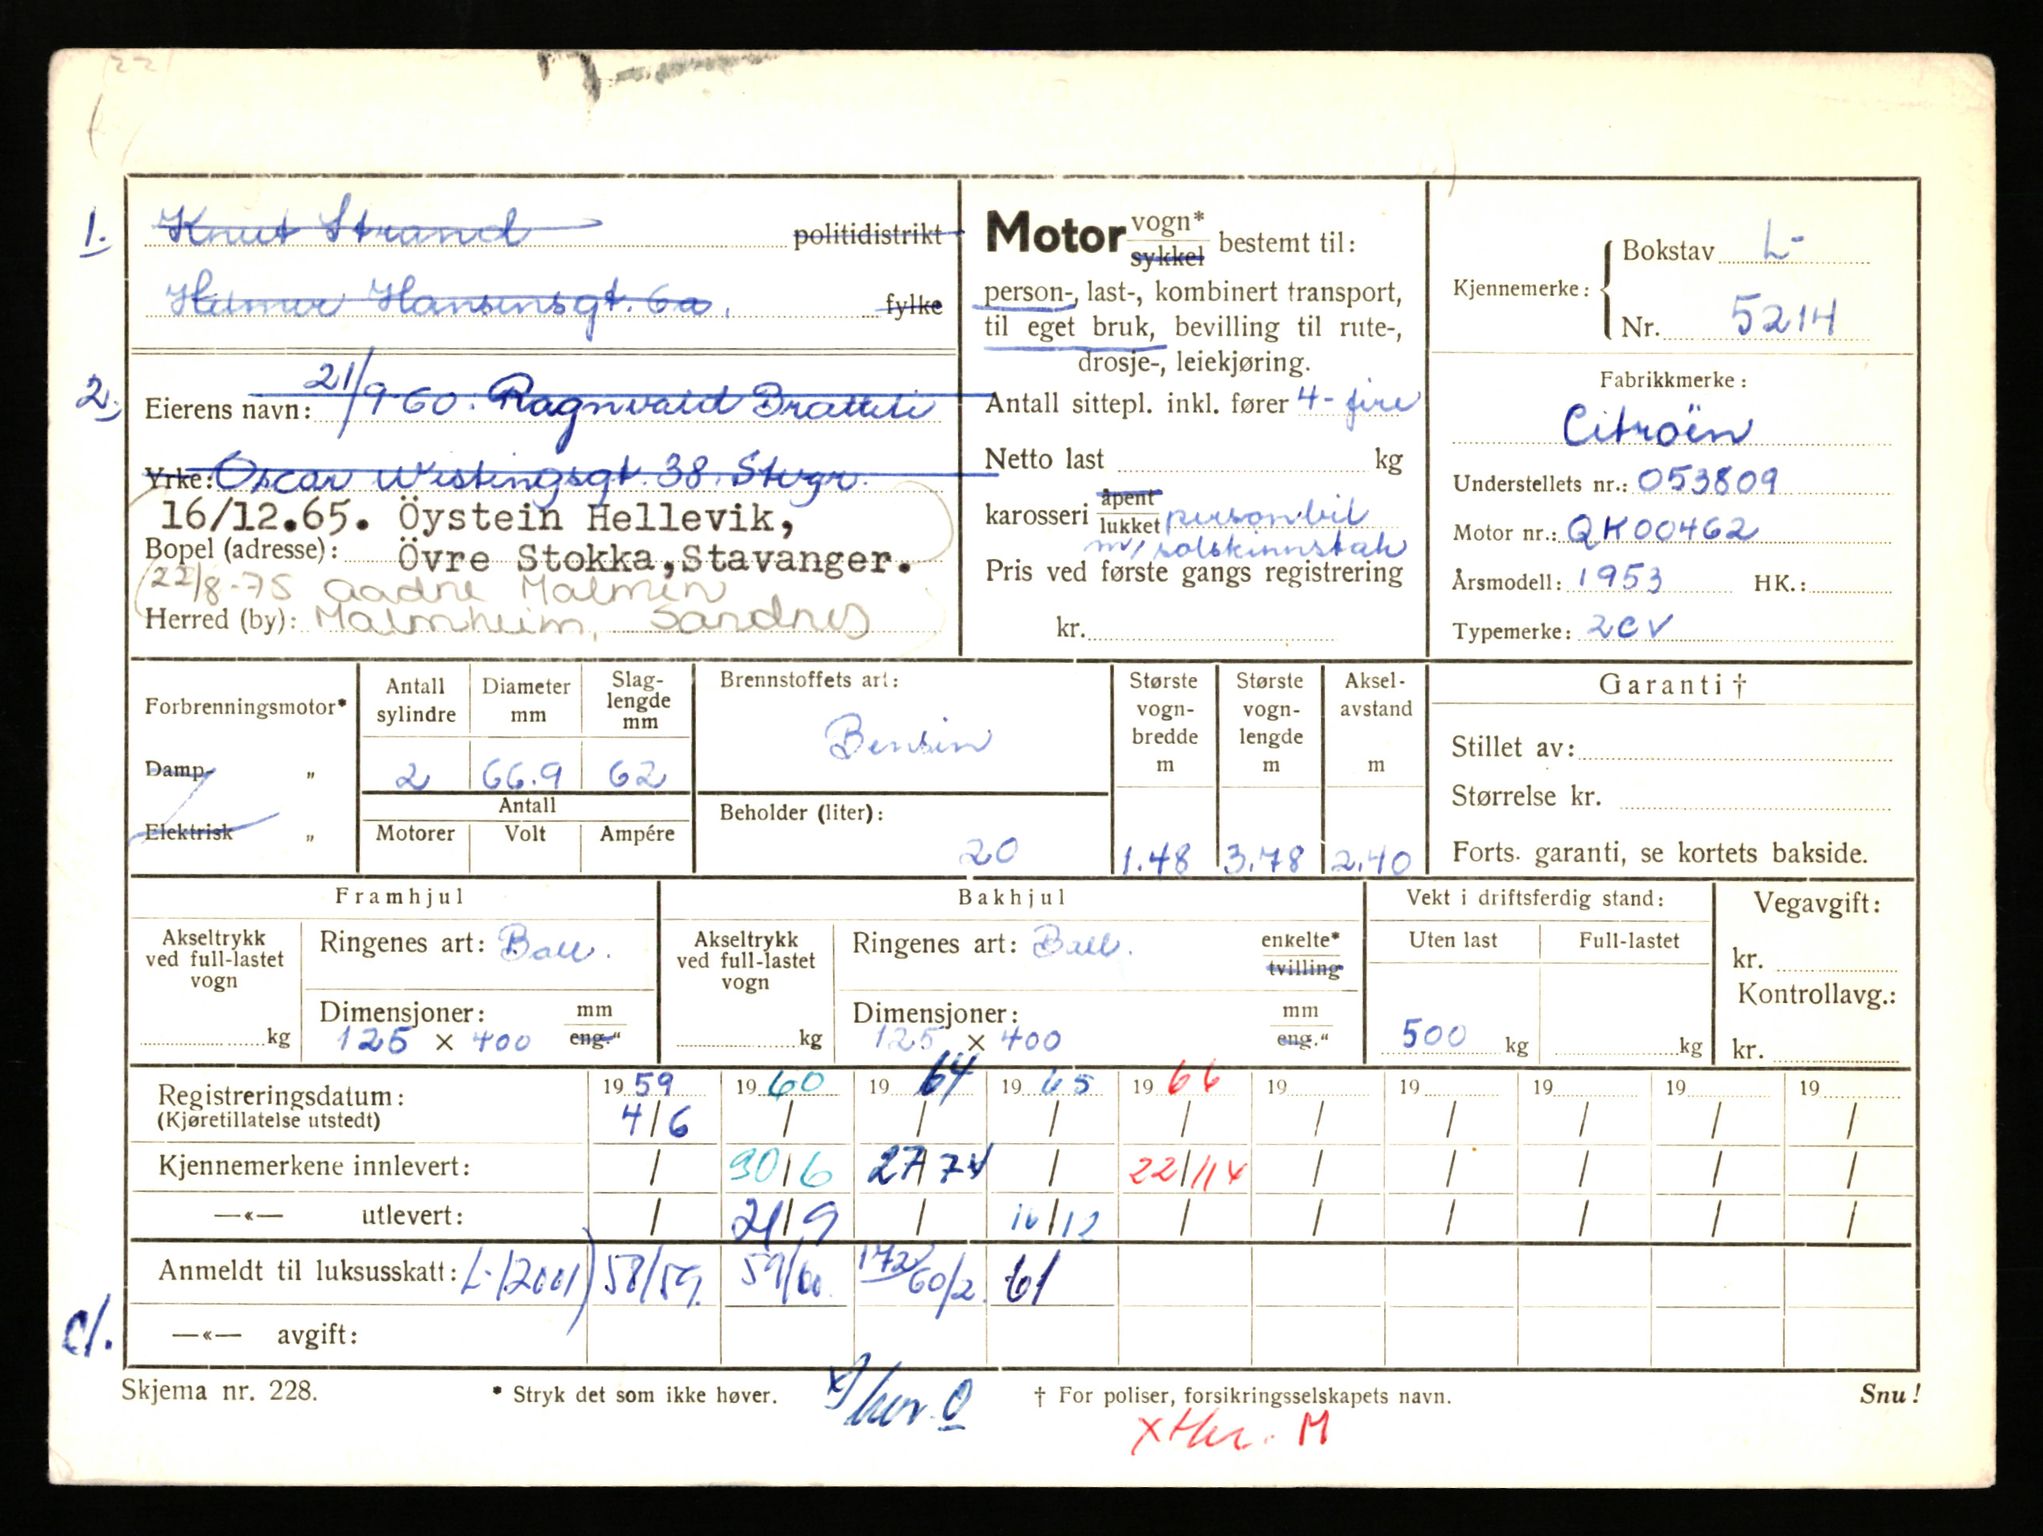 1. Knut Strand politidistrikt
Hilmer Hansensgt. 6a. fylke
2. Eierens navn: 21/9-60. Ragnvald Bratteli
Yrke: Oscar Wistingsgt. 38. Stvgr.
16/12.65. Öystein Hellevik,
Bopel (adresse): Övre Stokka, Stavanger.
22/8-75 Aadne Malmin
Herred (by): Malmheim, Sandnes
Motor vogn* sykkel bestemt til:
person-, last-, kombinert transport,
til eget bruk, bevilling til rute-,
drosje-, leiekjøring.
Antall sittepl. inkl. fører 4- fire
Netto last kg
karosseri åpent lukket personbil
m/ solskinnstak
Pris ved første gangs registrering
kr.
Kjennemerke: Bokstav L-
Nr. 5214
Fabrikkmerke:
Citroën
Understellets nr.: 053809
Motor nr.: QK00462
Årsmodell: 1953 HK.:
Typemerke: 2CV
Forbrenningsmotor*
Damp- „
Elektrisk „
Antall sylindre
Diameter mm
Slag-lengde mm
2 66.9 62
Antall
Motorer Volt Ampére
Brennstoffets art:
Bensin
Beholder (liter):
20
Største vogn-bredde m
Største vogn-lengde m
Aksel-avstand m
1.48 3.78 2.40
Garanti †
Stillet av:
Størrelse kr.
Forts. garanti, se kortets bakside.
Framhjul
Akseltrykk ved full-lastet vogn
kg
Ringenes art: Ball.
Dimensjoner: mm eng."
125 × 400
Bakhjul
Akseltrykk ved full-lastet vogn
kg
Ringenes art: Ball. enkelte* tvilling
Dimensjoner: mm eng."
125 × 400
Vekt i driftsferdig stand:
Uten last Full-lastet
500 kg kg
Vegavgift:
kr.
Kontrollavg.:
kr.
Registreringsdatum: 1959 1960 1964 1965 1966 19 19 19 19 19
(Kjøretillatelse utstedt) 4/6 / / / / / / / / /
Kjennemerkene innlevert: / 30/6 27/7 x / 22/11 x / / / / /
—«— utlevert: / 21/9 / 16/12 / / / / / /
Anmeldt til luksusskatt: L-12001) 58/59. 59/60. 172/60/2. 61
c/. —«— avgift:
Skjema nr. 228. * Stryk det som ikke høver. † For poliser, forsikringsselskapets navn. Snu!